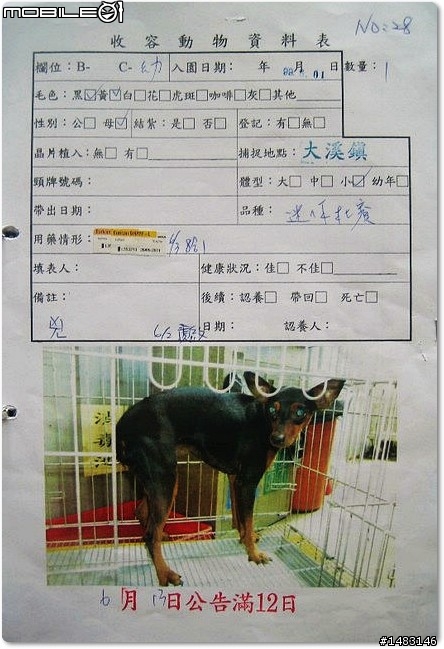 MOBILE01
收容動物資料表
NO:28
欄位：B- C-幼 入園日期： 年 月 01 日 數量：1
毛色：黑☑黃☑白□花□虎斑□咖啡□灰□其他
性別：公□ 母☑ 結紮：是□ 否□ 登記：有□無□
晶片植入：無□ 有□ 捕捉地點：大溪鎮
頸牌號碼： 體型：大□ 中□ 小☑ 幼年□
帶出日期： 品種：迷你杜賓
用藥情形：
填表人： 健康狀況：佳□ 不佳□
備註： 後續：認養□ 帶回□ 死亡□
兇 日期： 認養人：
6月13日公告滿12日
#1483146